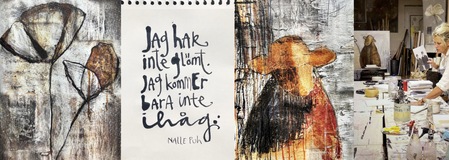 Jag har
inte glömt.
Jag kommer
bara inte
ihåg.
NALLE PUH